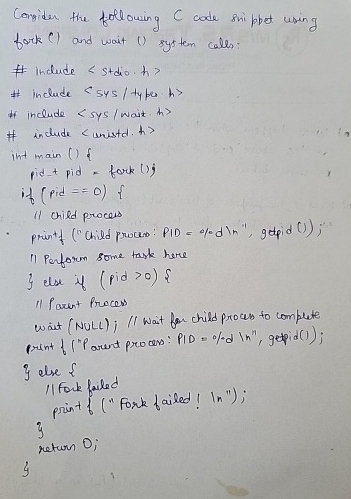 Consider the following C code snippet using
fork() and wait() system calls:
# include <stdio.h>
# include <sys/types.h>
# include <sys/wait.h>
# include <unistd.h>
int main () {
pid_t pid = fork();
if (pid == 0) {
// child process
printf ("Child process: PID = %d\n", getpid());
// Perform some task here
} else if (pid > 0) {
// Parent Process
wait (NULL); // Wait for child process to complete
printf ("Parent process: PID = %d \n", getpid());
} else {
// Fork failed
printf ("Fork failed! \n");
}
return 0;
}